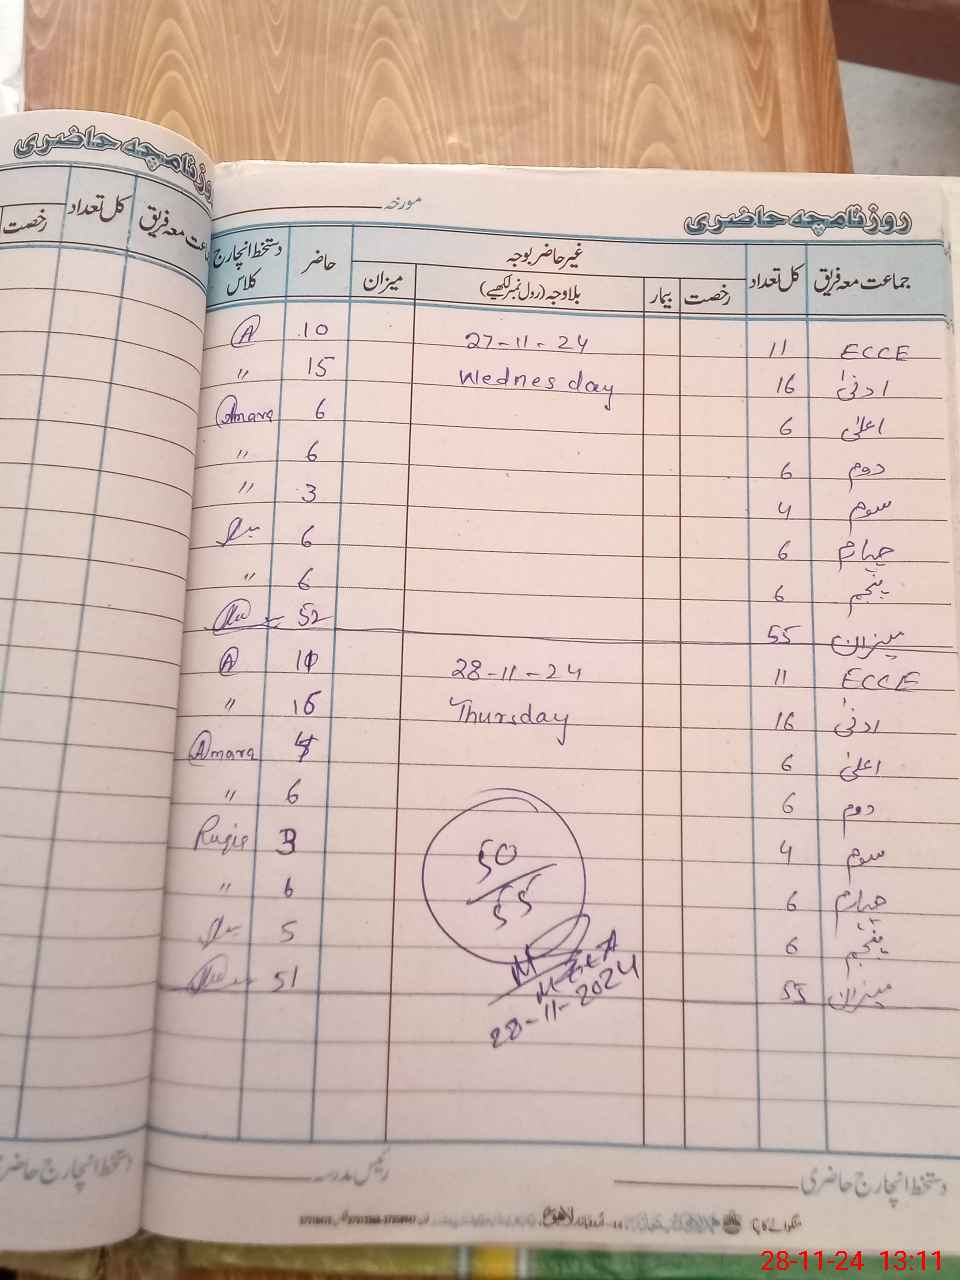 روزنامچہ حاضری
کل تعداد
رخصت
روزنامچہ حاضری
مورخہ
جماعت معہ فریق
کل تعداد
غیر حاضر بوجہ
رخصت
بیمار
بلاوجہ (رول نمبر لکھیے)
میزان
حاضر
دستخط انچارج کلاس
ECCE 11 27-11-24 10 A
ادنیٰ 16 Wednesday 15 〃
اعلیٰ 6 6 Amara
دوم 6 6 〃
سوم 4 3 〃
چہارم 6 6
پنجم 6 6 〃
میزان 55 52
ECCE 11 28-11-24 A
ادنیٰ 16 Thursday 〃
اعلیٰ 6 Amara
دوم 6 6 〃
سوم 4 3
چہارم 6 6 〃
پنجم 6 5
میزان 55 51
50
55
28-11-2024
دستخط انچارج حاضری
رئیس مدرسہ
دستخط انچارج حاضری
28-11-24 13:11